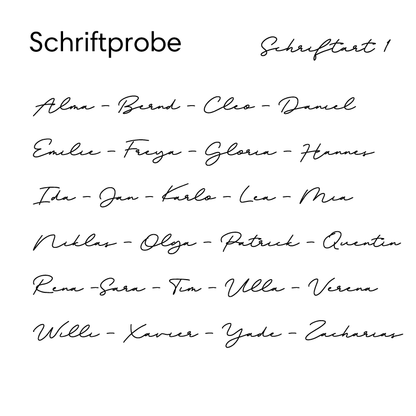 Schriftprobe
Schriftart 1
Alma - Bernd - Cleo - Daniel
Emilie - Freya - Gloria - Hannes
Ida - Jan - Karlo - Lea - Mia
Niklas - Olga - Patrick - Quentin
Rena -Sara - Tim - Ulla - Verena
Willi - Xavier - Yade - Zacharias